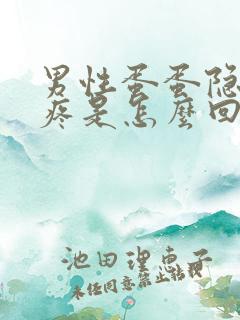 男性蛋蛋隐
疼是怎麼回
池田理惠子
未经同意禁止转载